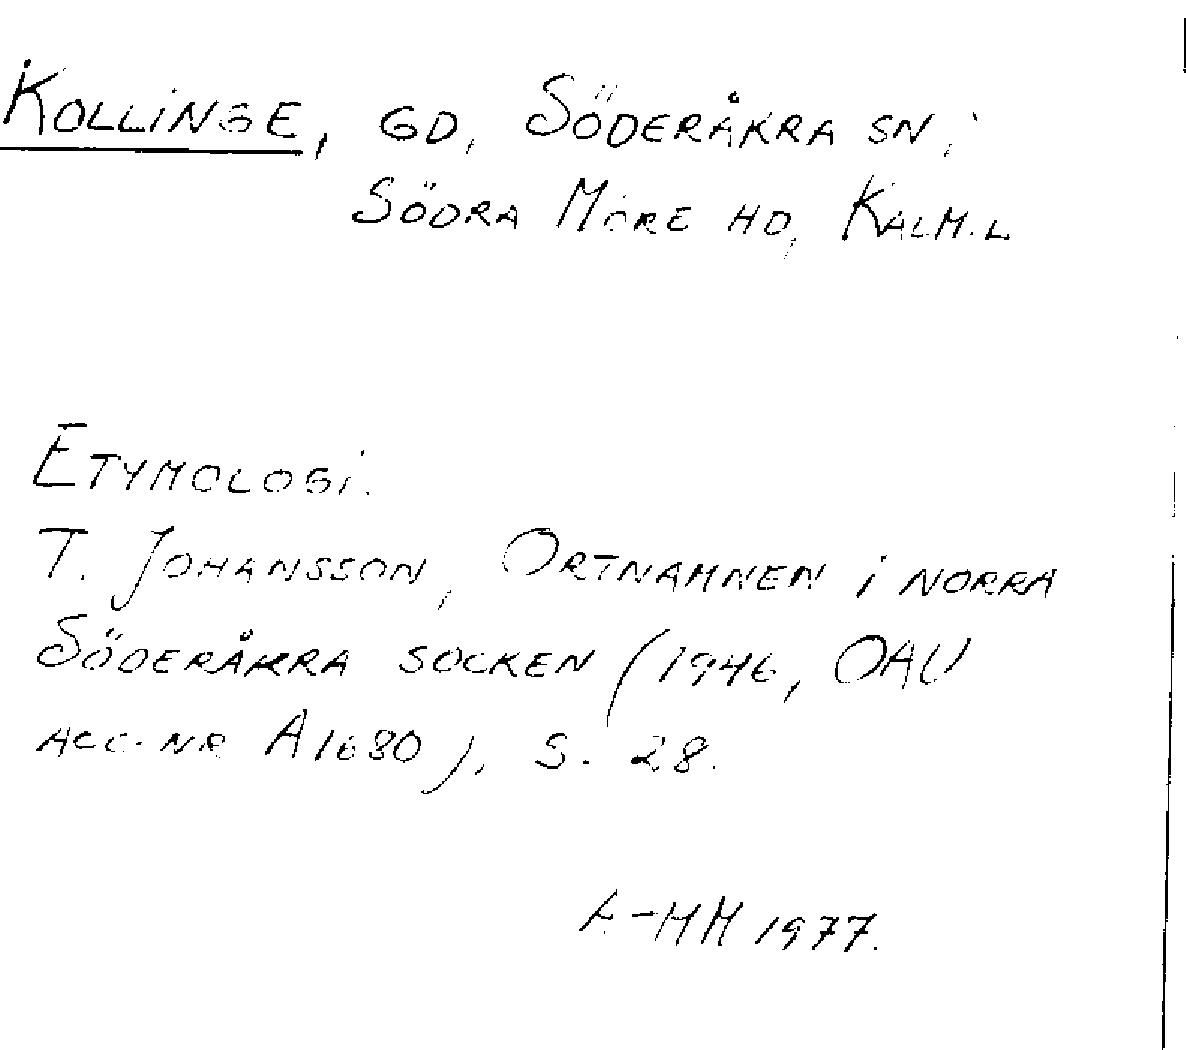 KOLLINGE, GD, SÖDERÅKRA SN,
SÖDRA MÖRE HD, KALM.L
ETYMOLOGI.
T. JOHANSSON, ORTNAMNEN I NORRA
SÖDERÅKRA SOCKEN (1946, OAU
ACC.NR A1680), S. 28.
A-MM 1977.